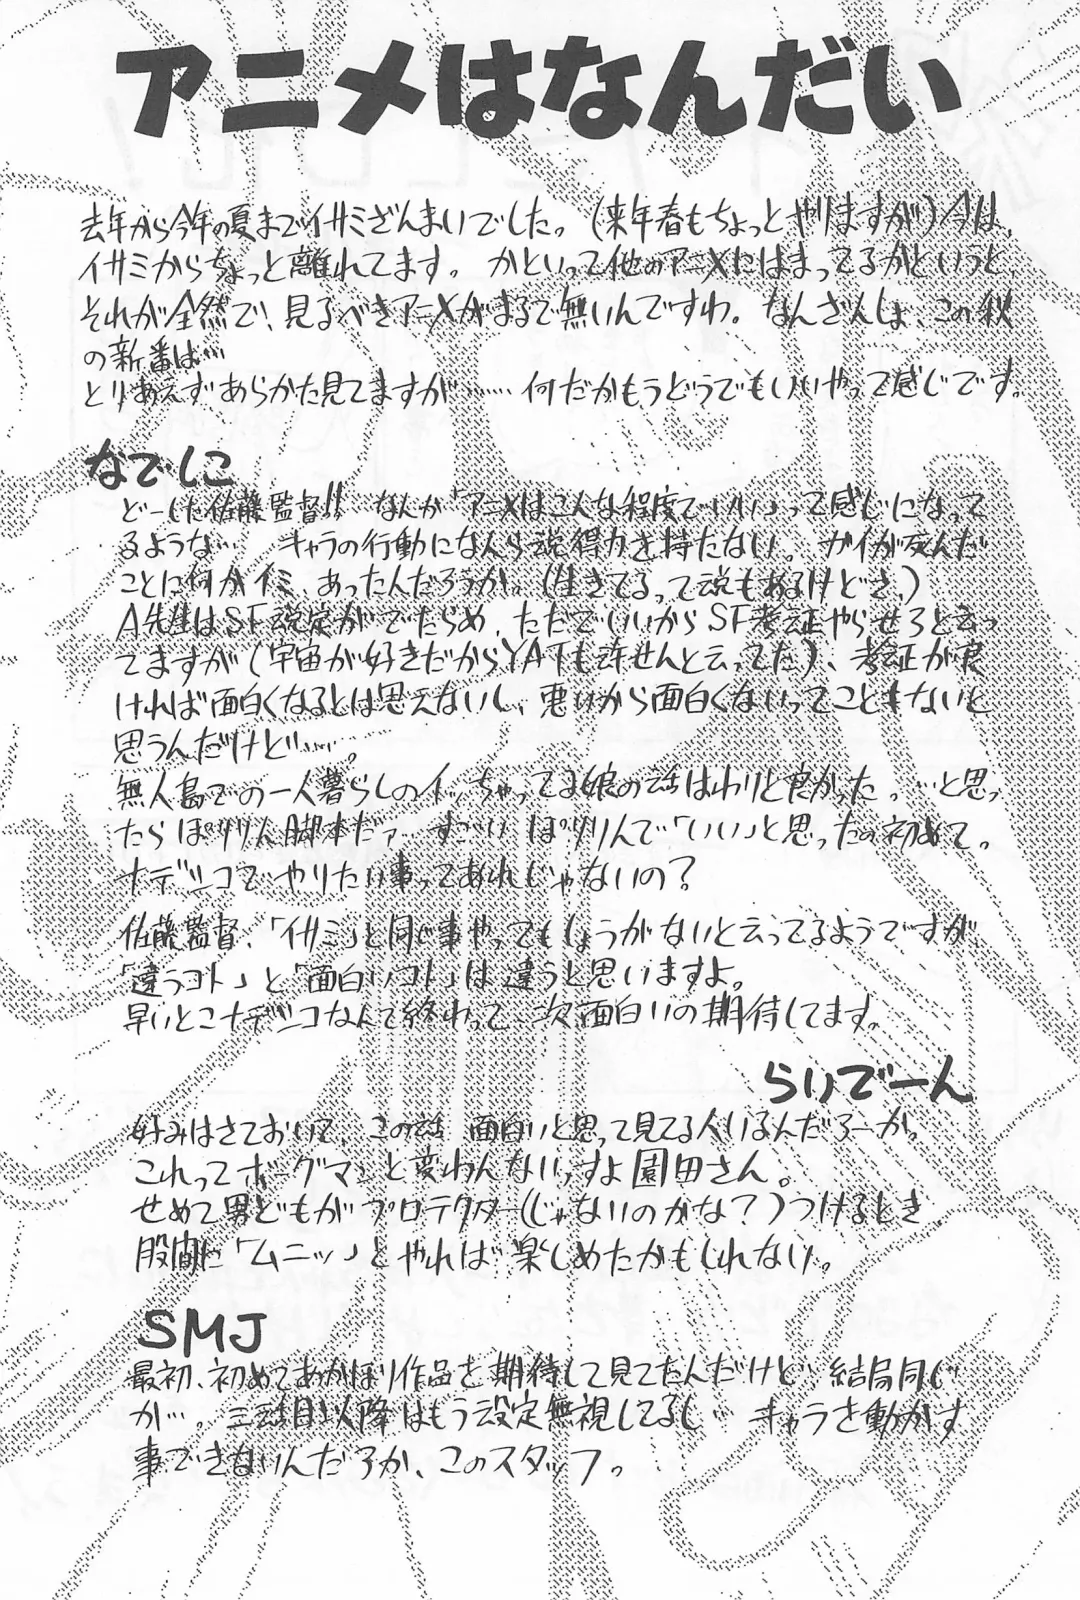 アニメはなんだい
去年から今年の夏までイサミざんまいでした。(来年春もちょっとやりますが)今は、
イサミからちょっと離れてます。かといって他のアニメにはまってるかというと、
それが全然で、見るべきアニメがまるで無いんですわ。なんざんしょ、この秋
の新番は…
とりあえずあらかた見てますが……何だかもうどうでもいいやって感じです。
なでしこ
どーした佐藤監督!! なんか「アニメはこんな程度でいい」って感じになって
るような… キャラの行動になんら説得力を持たない。ガイが死んだ
ことに何かイミ、あったんだろうか。(生きてるって説もあるけどさ。)
A先生はSF設定がでたらめ、ただでいいからSF考証やらせろと云っ
てますが(宇宙が好きだからYATも許せんと云ってた)、考証が良
ければ面白くなるとは思えないし、悪いから面白くないってこともないと
思うんだけど……。
無人島での一人暮らしのイッちゃってる娘の話はわりと良かった。…と思っ
たらぽりりん脚本だァ…すごーい ぽりりんで「いい」と思ったの初めて。
ナデシコでやりたい事ってあれじゃないの?
佐藤監督、「イサミ」と同じ事やってもしょうがないと云ってるようですが、
「違うコト」と「面白いコト」は違うと思いますよ。
早いとこナデシコなんて終わって 次、面白いの期待してます。
らいでーん
好みはさておいて、この話 面白いと思って見てる人いるんだろーか。
これってボーグマンと変わんないっすよ園田さん。
せめて男どもがプロテクター(じゃないのかな?)つけるとき、
股間に「ムニッ」とやれば楽しめたかもしれない。
SMJ
最初、初めてあかほり作品を期待して見てたんだけど…結局同じ
か…。三話目以降はもう設定無視してるし… キャラを動かす
事できないんだろか、このスタッフ。